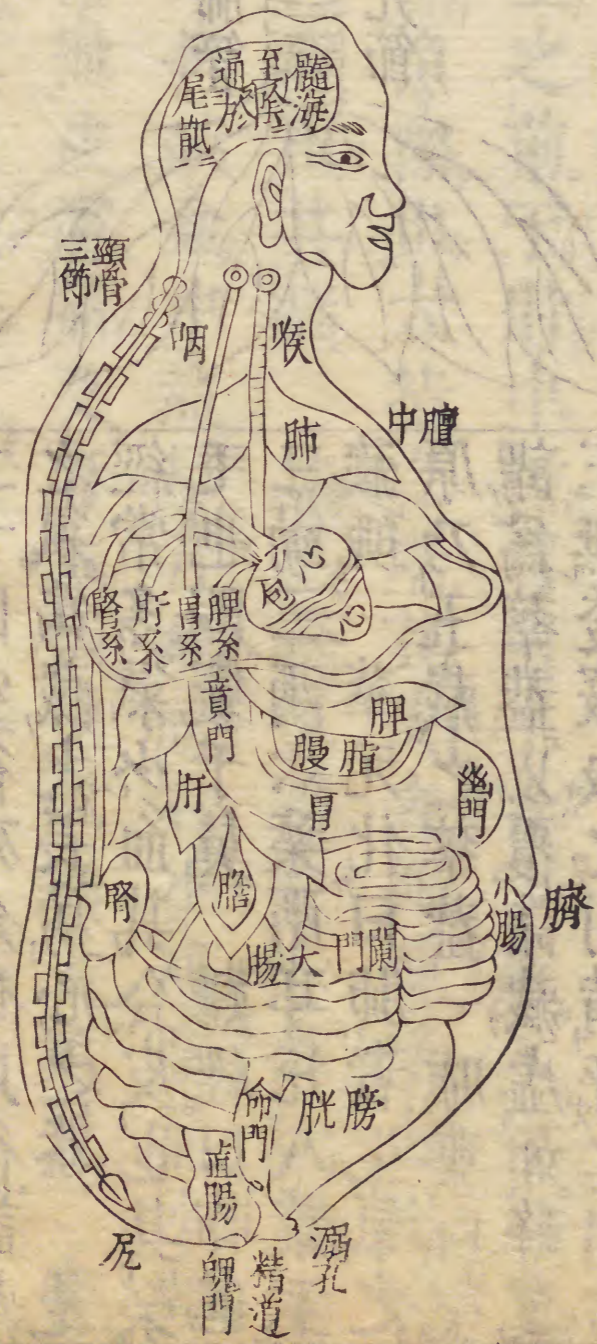 髓海
至陰
通於
尾骶
頸骨
三節
咽
喉
肺
膻中
心
包
脾系
胃系
肝系
腎系
賁門
脾
脂膜
胃
幽門
肝
膽
腎
小腸
臍
闌門
大腸
膀胱
命門
直腸
溺孔
精道
魄門
尻